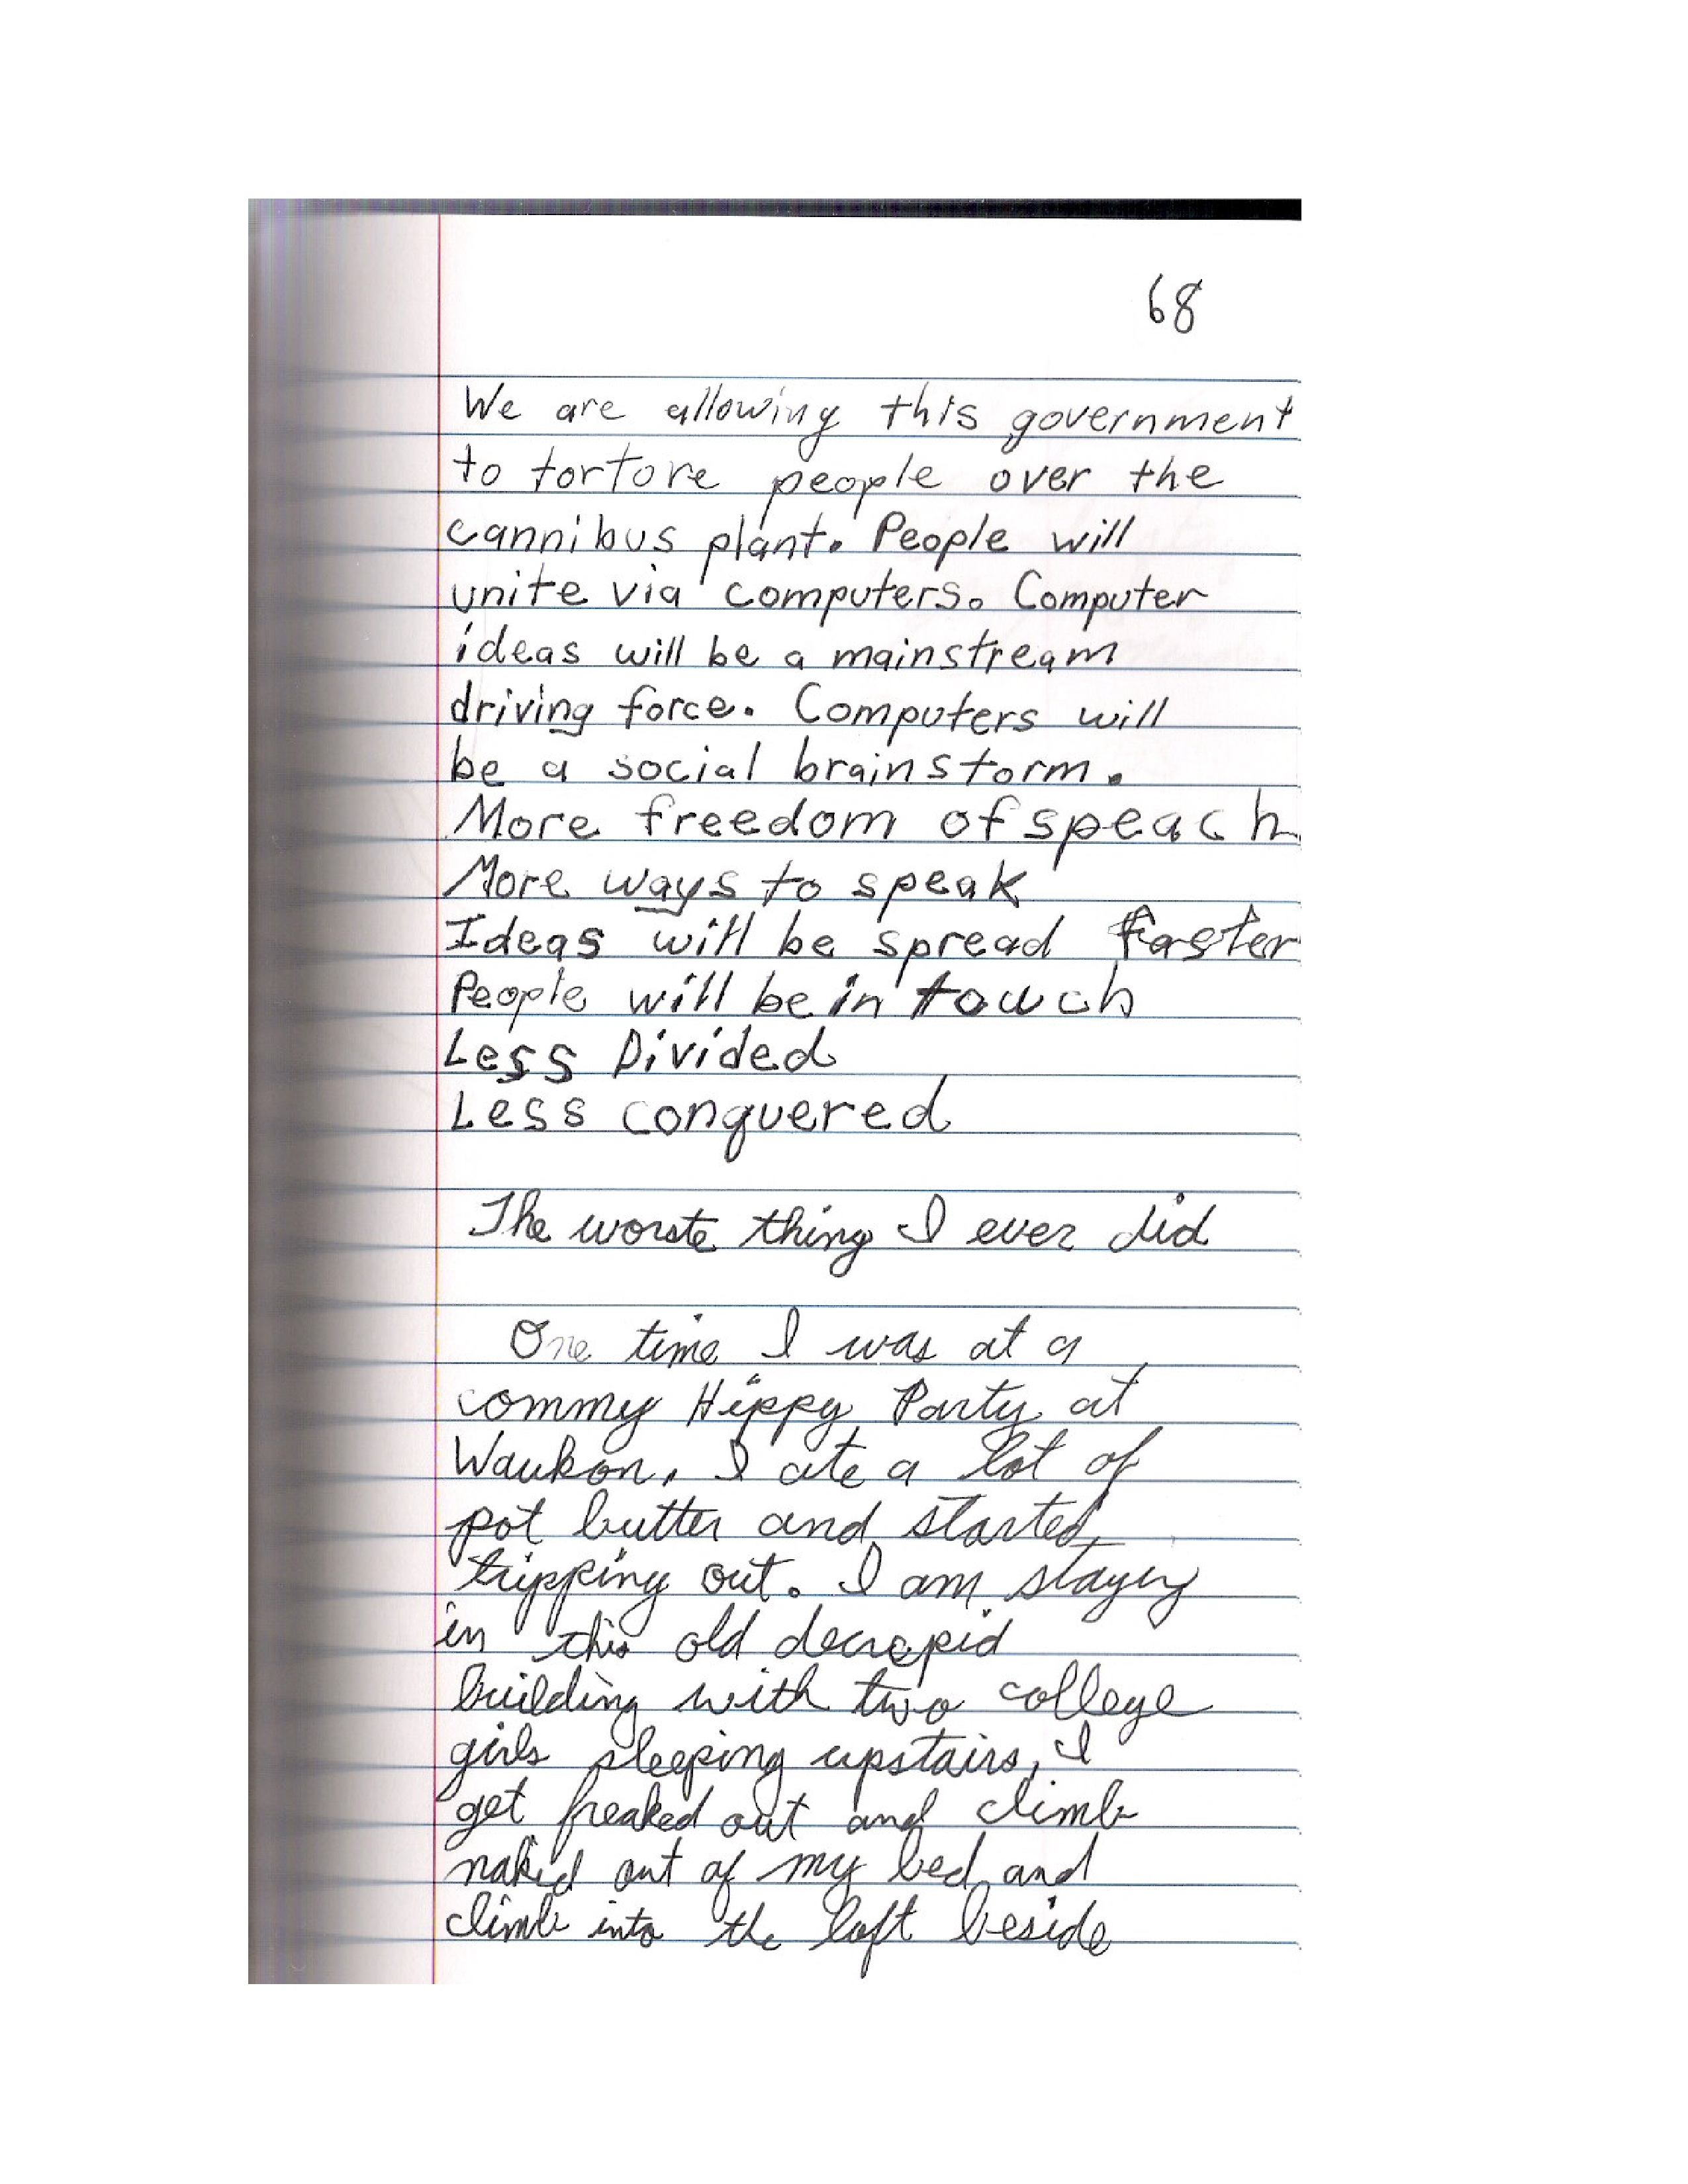 68
We are allowing this government
to tortore people over the
cannibus plant. People will
unite via computers. Computer
ideas will be a mainstream
driving force. Computers will
be a social brainstorm.
More freedom of speach
More ways to speak
Ideas will be spread faster
People will be in touch
Less Divided
Less conquered
The worste thing I ever did
One time I was at a
commy Hippy Party at
Waukon. I ate a lot of
pot butter and started
tripping out. I am staying
in this old decrepid
building with two college
girls sleeping upstairs, I
get freaked out and climb
naked out of my bed and
climb into the loft beside